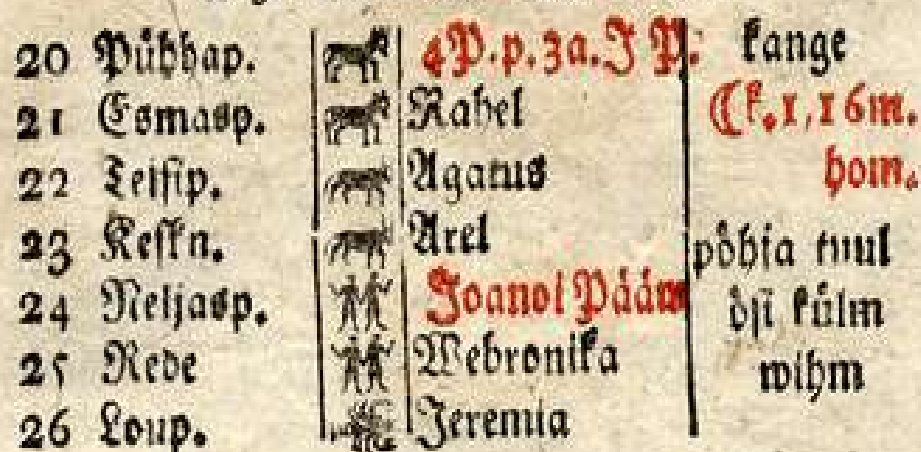 20 Pühhap. 4 P. p. 3a. J P. kange
21 Esmasp. Rahel ☾ k. 1, 16 m.
22 Teisip. Agatus hom.
23 Keskn. Arel põhja tuul
24 Neljasp. Joanol Pääw ösi külm
25 Rede Webronika wihm
26 Loup. Jeremia